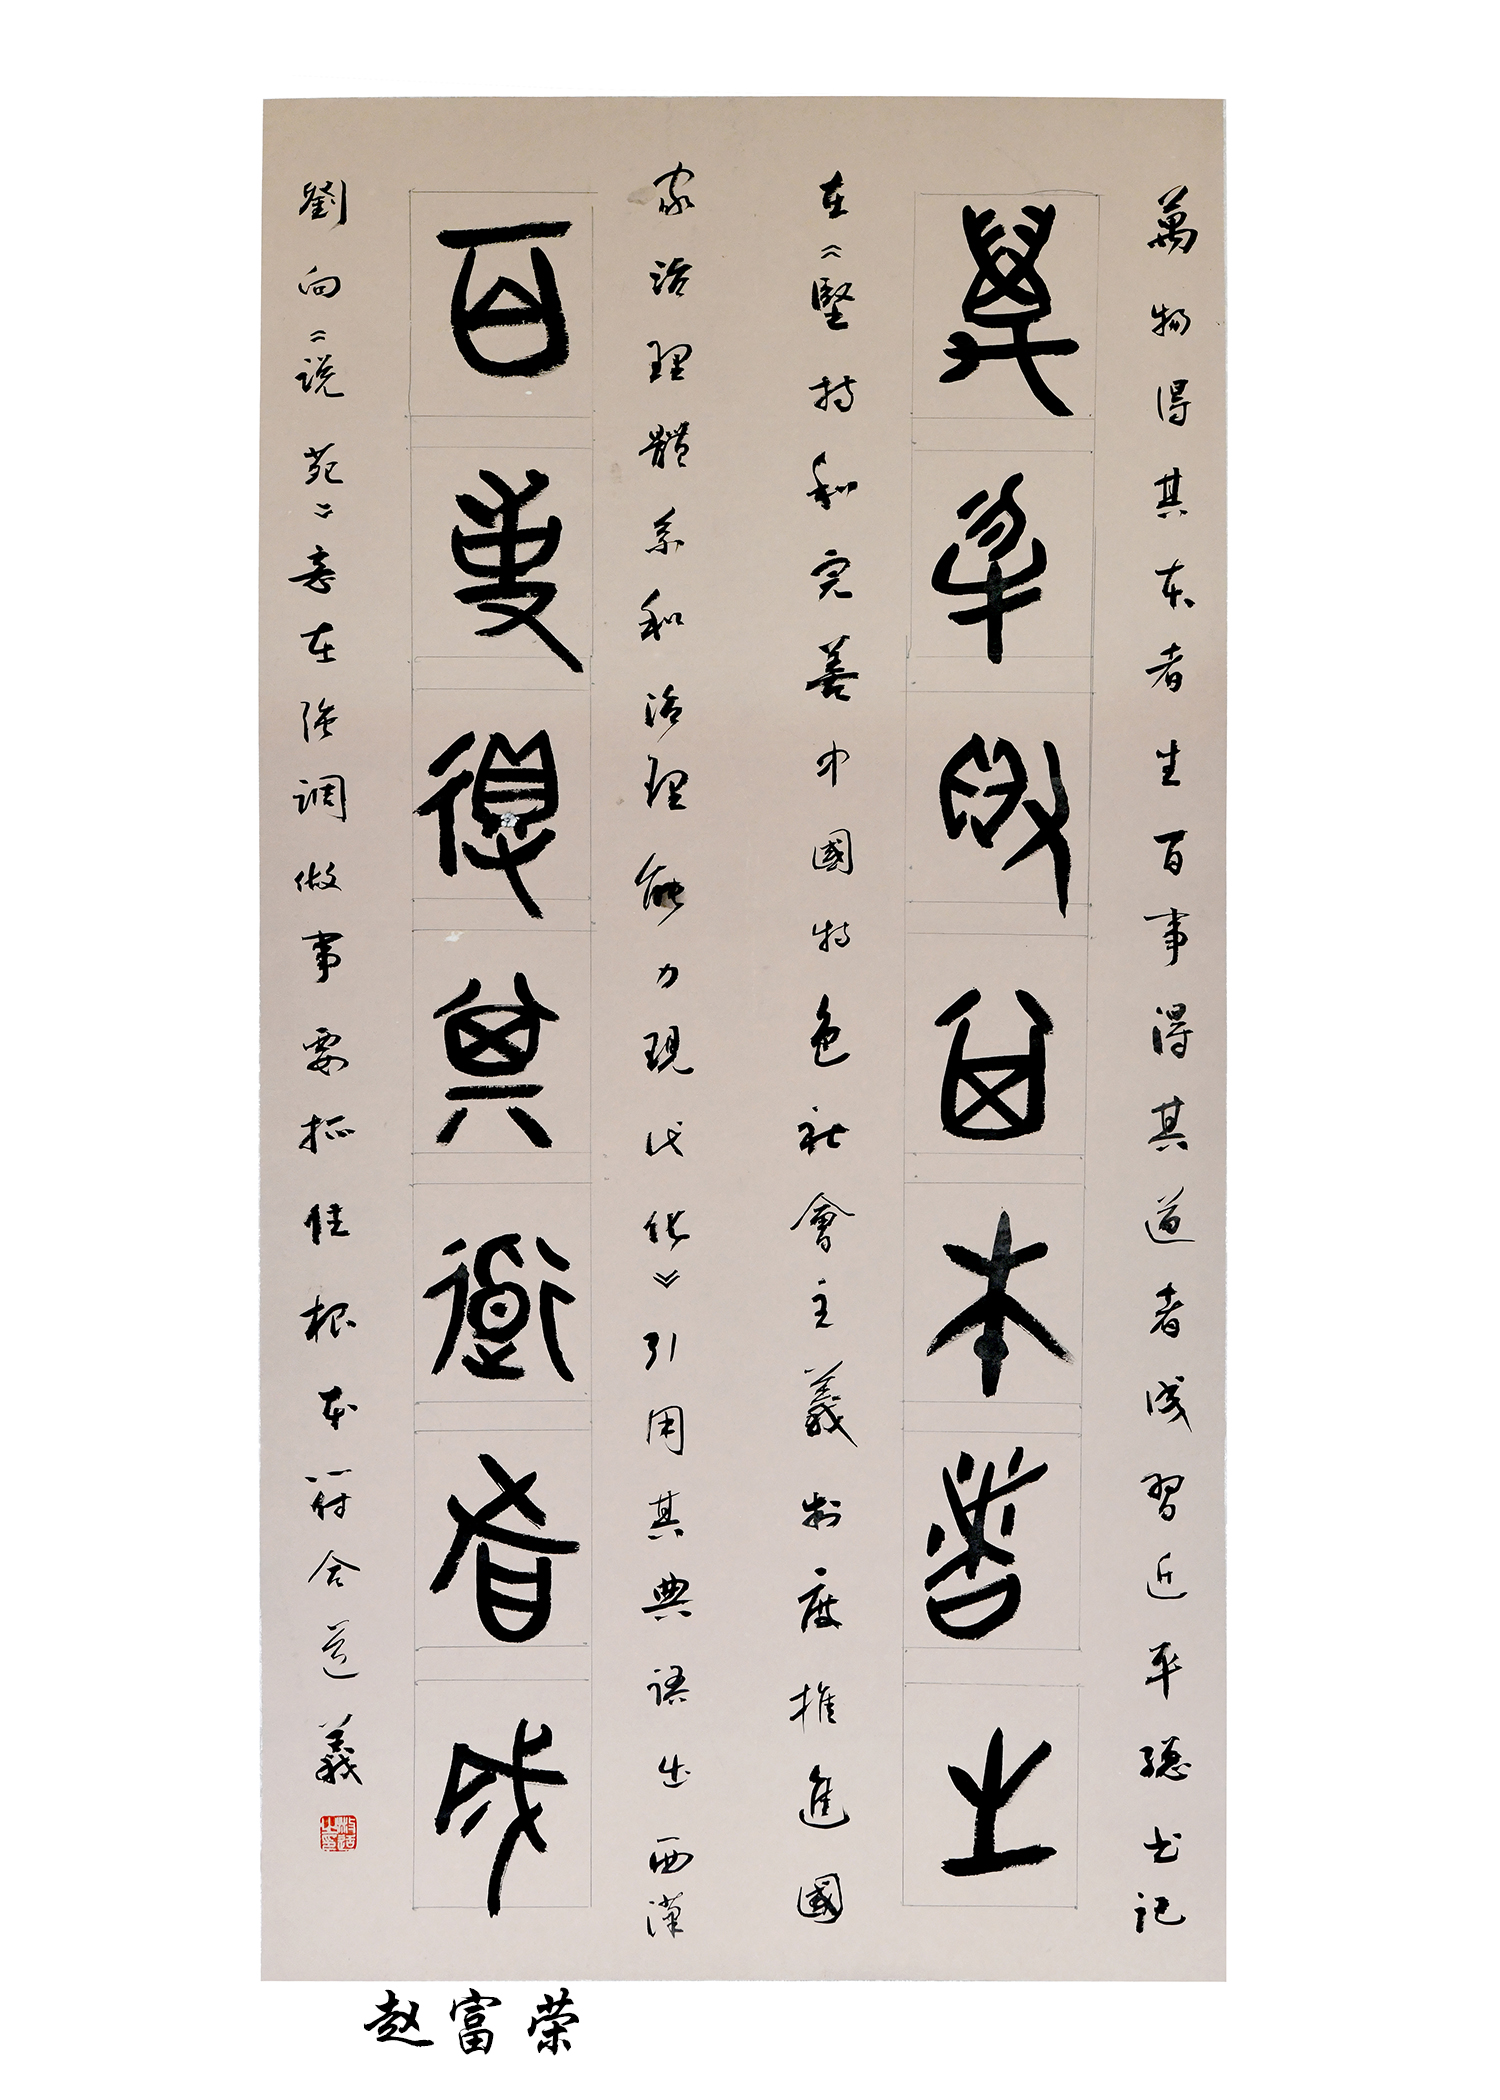 萬物得其本者生百事得其道者成習近平總书記
萬物得其本者生
在《堅持和完善中國特色社會主義制度推進國
家治理體系和治理能力現代化》引用其典語出西漢
百事得其道者成
劉向《説苑》意在强調做事要抓住根本符合道義
赵富荣